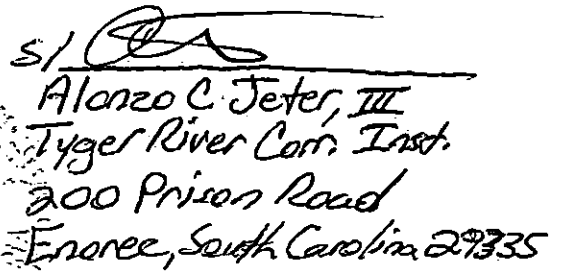 s/
Alonzo C. Jeter, III
Tyger River Corr. Inst.
200 Prison Road
Enoree, South Carolina 29335